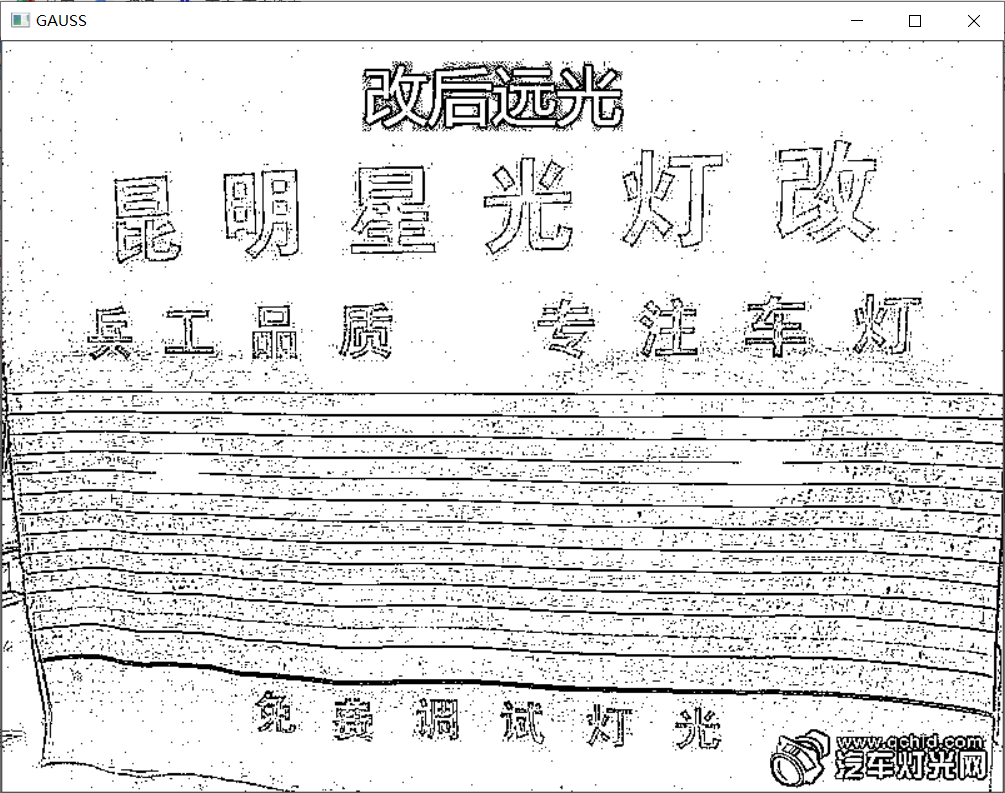 GAUSS
改后远光
昆明星光灯改
兵工品质 专注车灯
免费调试灯光
www.qchid.com
汽车灯光网